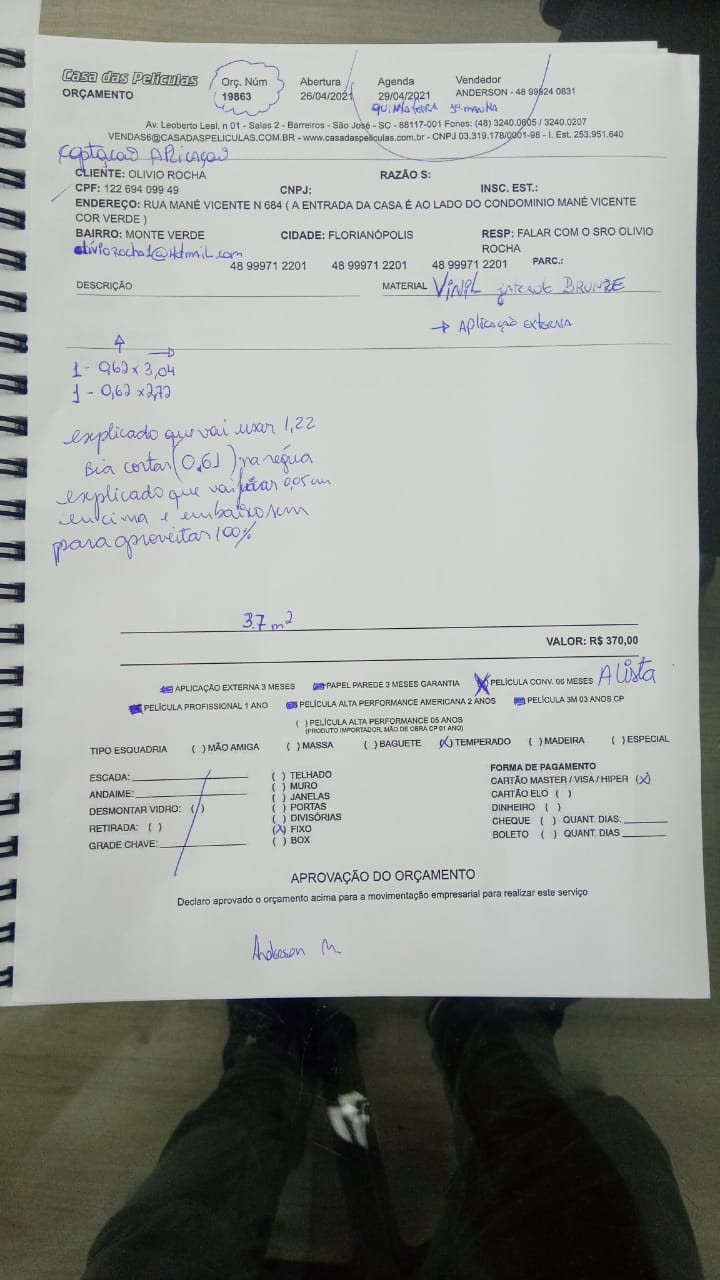 Casa das Películas
ORÇAMENTO
Orç. Núm
19863
Abertura
26/04/2021
Agenda
29/04/2021
QUINTA FEIRA MANHA
Vendedor
ANDERSON - 48 99924 0831
Av. Leoberto Leal, n 01 - Salas 2 - Barreiros - São José - SC - 88117-001 Fones: (48) 3240.0605 / 3240.0207
VENDAS6@CASADASPELICULAS.COM.BR - www.casadaspeliculas.com.br - CNPJ 03.319.178/0001-98 - I. Est. 253.951.640
APLICAÇÃO
CLIENTE: OLIVIO ROCHA RAZÃO S:
CPF: 122 694 099 49 CNPJ: INSC. EST.:
ENDEREÇO: RUA MANÉ VICENTE N 684 ( A ENTRADA DA CASA É AO LADO DO CONDOMINIO MANÉ VICENTE
COR VERDE )
BAIRRO: MONTE VERDE CIDADE: FLORIANÓPOLIS RESP: FALAR COM O SRO OLIVIO
ROCHA
olivioRocha1@Hotmail.com
48 99971 2201 48 99971 2201 48 99971 2201 PARC.:
DESCRIÇÃO MATERIAL VINIL BRONZE
→ APLICAÇÃO EXTERNA
1 - 0,62 x 3,04
1 - 0,62 x 2,72
explicado que vai usar 1,22
Bia cortar (0,61) na régua
explicado que vai 0,05 cm
em cima e embaixo sem
para aproveitar 100%
3.7 m²
VALOR: R$ 370,00
APLICAÇÃO EXTERNA 3 MESES PAPEL PAREDE 3 MESES GARANTIA PELÍCULA CONV. 06 MESES A lista
PELÍCULA PROFISSIONAL 1 ANO PELÍCULA ALTA PERFORMANCE AMERICANA 2 ANOS PELÍCULA 3M 03 ANOS CP
( ) PELÍCULA ALTA PERFORMANCE 05 ANOS
(PRODUTO IMPORTADOR, MÃO DE OBRA CP 01 ANO)
TIPO ESQUADRIA ( ) MÃO AMIGA ( ) MASSA ( ) BAGUETE (X) TEMPERADO ( ) MADEIRA ( ) ESPECIAL
ESCADA:
ANDAIME:
DESMONTAR VIDRO: ( )
RETIRADA: ( )
GRADE CHAVE:
( ) TELHADO
( ) MURO
( ) JANELAS
( ) PORTAS
( ) DIVISÓRIAS
(X) FIXO
( ) BOX
FORMA DE PAGAMENTO
CARTÃO MASTER / VISA / HIPER (X)
CARTÃO ELO ( )
DINHEIRO ( )
CHEQUE ( ) QUANT. DIAS:
BOLETO ( ) QUANT. DIAS
APROVAÇÃO DO ORÇAMENTO
Declaro aprovado o orçamento acima para a movimentação empresarial para realizar este serviço
Anderson M.